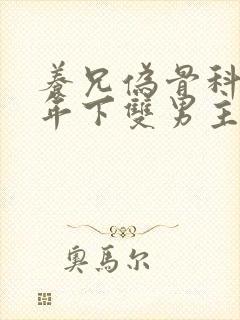 養兄偽骨科
年下雙男主
奧馬爾